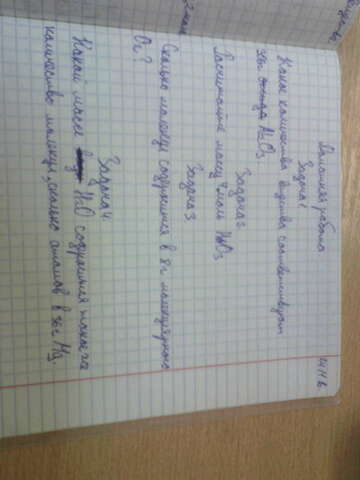 Домашняя работа
Задача 1.
Какое количества вещества соответствует
Al2O3
Задача 2
Рассчитайте массу 4 моль
Задача 3
Сколько молекул содержится в 8г молекулярного
O2?
Задача 4.
Какой массе H2O содержится такое же
количество молекул, сколько атомов в 36г Mg.